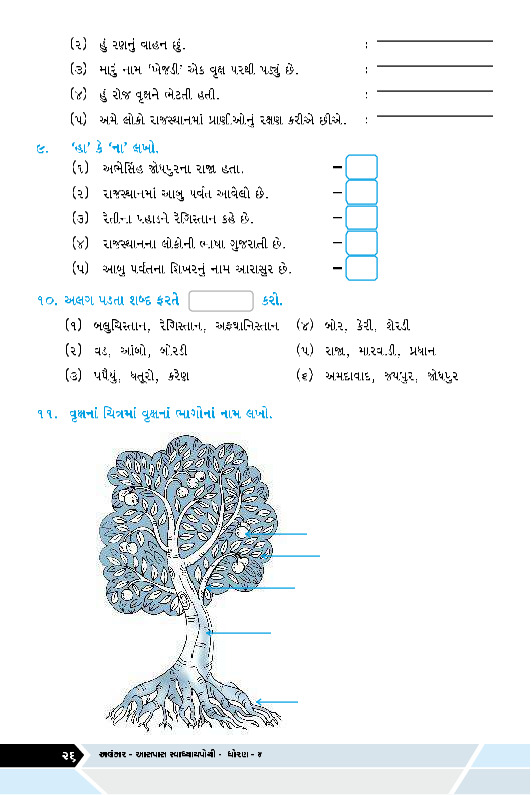 (૨) હું રણનું વાહન છું. :
(૩) મારું નામ 'ખેજડી' એક વૃક્ષ પરથી પડ્યું છે. :
(૪) હું રોજ વૃક્ષને ભેટતી હતી. :
(૫) અમે લોકો રાજસ્થાનમાં પ્રાણીઓનું રક્ષણ કરીએ છીએ. :
૯. 'હા' કે 'ના' લખો.
(૧) અભેસિંહ જોધપુરના રાજા હતા. –
(૨) રાજસ્થાનમાં આબુ પર્વત આવેલો છે. –
(૩) રેતીના પહાડને રેગિસ્તાન કહે છે. –
(૪) રાજસ્થાનના લોકોની ભાષા ગુજરાતી છે. –
(૫) આબુ પર્વતના શિખરનું નામ આરાસુર છે. –
૧૦. અલગ પડતા શબ્દ ફરતે કરો.
(૧) બલુચિસ્તાન, રેગિસ્તાન, અફઘાનિસ્તાન (૪) બોર, કેરી, શેરડી
(૨) વડ, આંબો, બોરડી (૫) રાજા, મારવાડી, પ્રધાન
(૩) પપૈયું, ધતૂરો, કરેણ (૬) અમદાવાદ, જયપુર, જોધપુર
૧૧. વૃક્ષનાં ચિત્રમાં વૃક્ષનાં ભાગોનાં નામ લખો.
૨૬ અલંકાર - આસપાસ સ્વાધ્યાયપોથી - ધોરણ - ૪